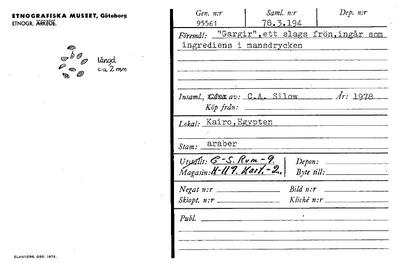 ETNOGRAFISKA MUSEET, Göteborg
ETNOGR. ARKEOL.
längd
c:a 2 mm
Gen. n:r
95561
Saml. n:r
78.3.194
Dep. n:r
Föremål: "Gargir", ett slags frön, ingår som
ingrediens i mansdrycken
Insaml. av: C.A. Silow År: 1978
Köp från:
Lokal: Kairo, Egypten
Stam: araber
Utställt: C-S. Rum-9. Depon:
Magasin: H-119. Kart.-2. Byte till:
Negat n:r Bild n:r
Skiopt. n:r Kliché n:r
Publ.
ELANDERS, GBG. 1972.